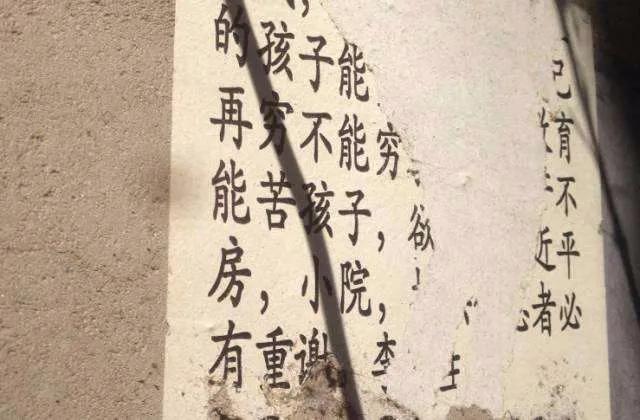 的孩子能 己
再穷不能穷 育
能苦孩子,欲 不
房,小院, 近平
有重谢。李 者必